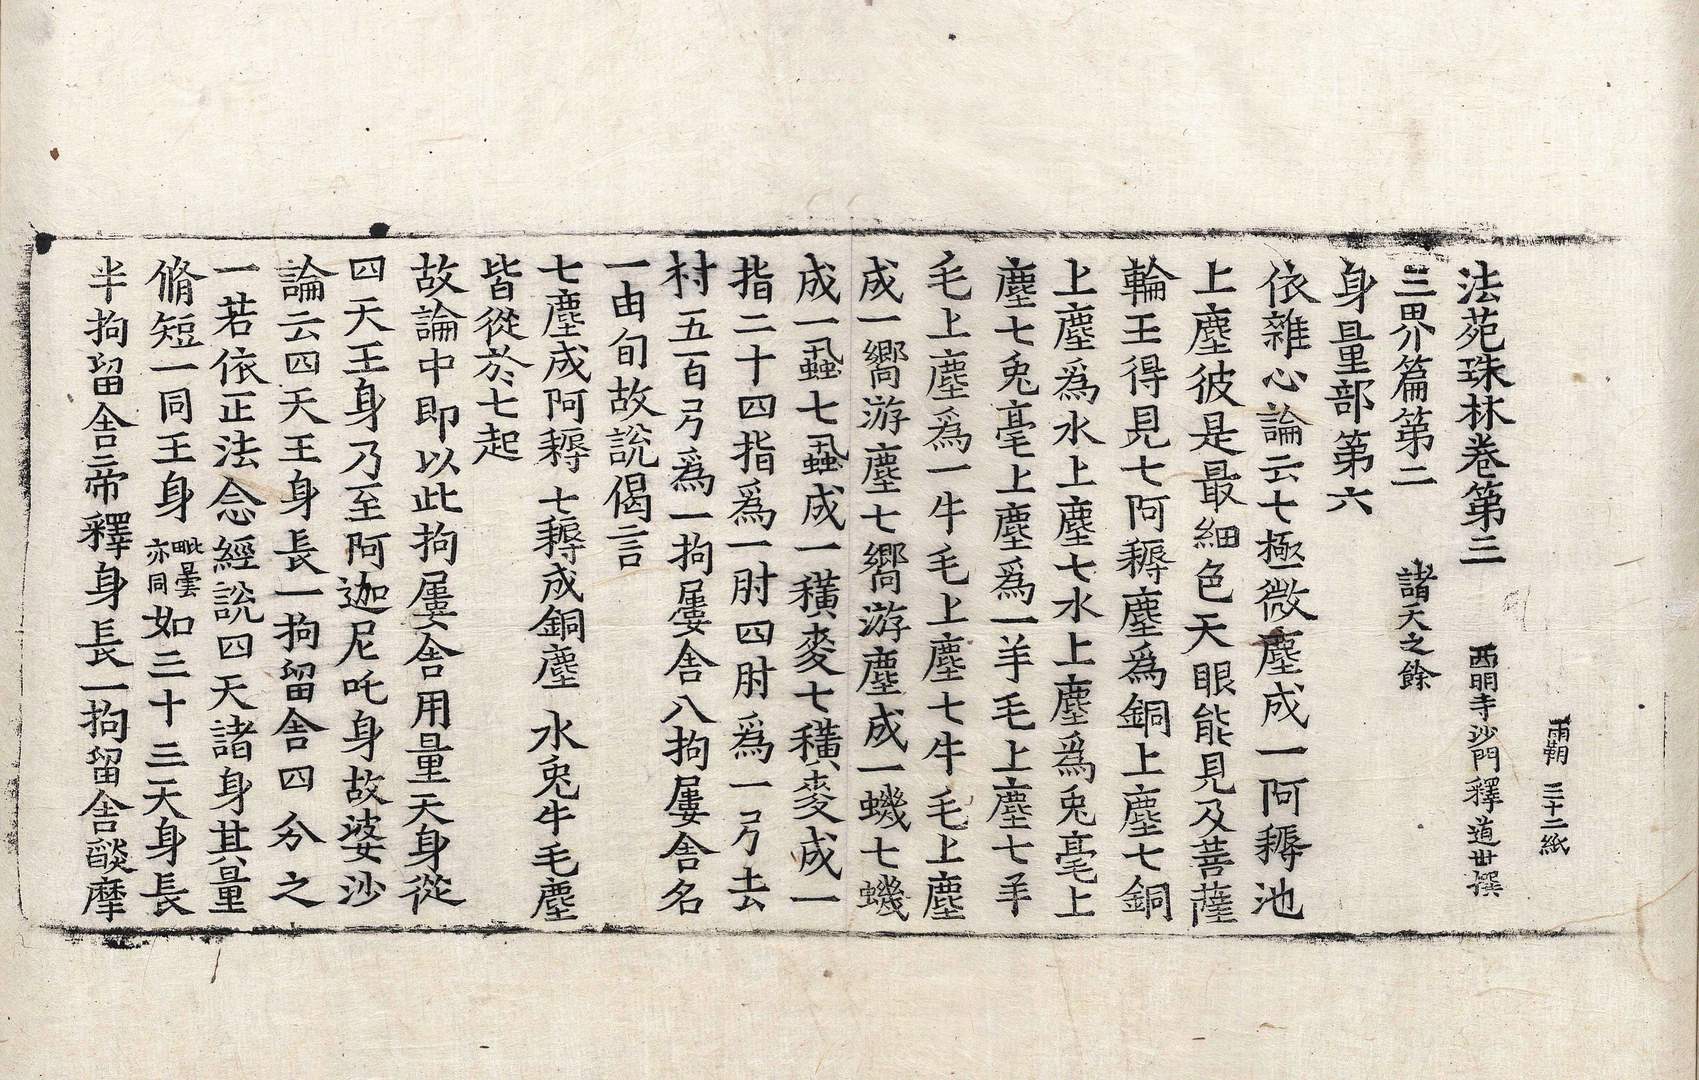 法苑珠林卷第三
西明寺沙門釋道世撰
三十二紙
三界篇第二 諸天之餘
身量部第六
依雜心論云七極微塵成一阿耨池
上塵彼是最細色天眼能見及菩薩
輪王得見七阿耨塵爲銅上塵七銅
上塵爲水上塵七水上塵爲兔毫上
塵七兔毫上塵爲一羊毛上塵七羊
毛上塵爲一牛毛上塵七牛毛上塵
成一嚮游塵七嚮游塵成一蟣七蟣
成一蝨七蝨成一穬麥七穬麥成一
指二十四指爲一肘四肘爲一弓去
村五百弓爲一拘屢舍八拘屢舍名
一由旬故說偈言
七塵成阿耨 七耨成銅塵 水兔牛毛塵
皆從於七起
故論中即以此拘屢舍用量天身從
四天王身乃至阿迦尼吒身故婆沙
論云四天王身長一拘留舍四分之
一若依正法念經說四天諸身其量
脩短一同王身毗曇亦同如三十三天身長
半拘留舍帝釋身長一拘留舍燄摩